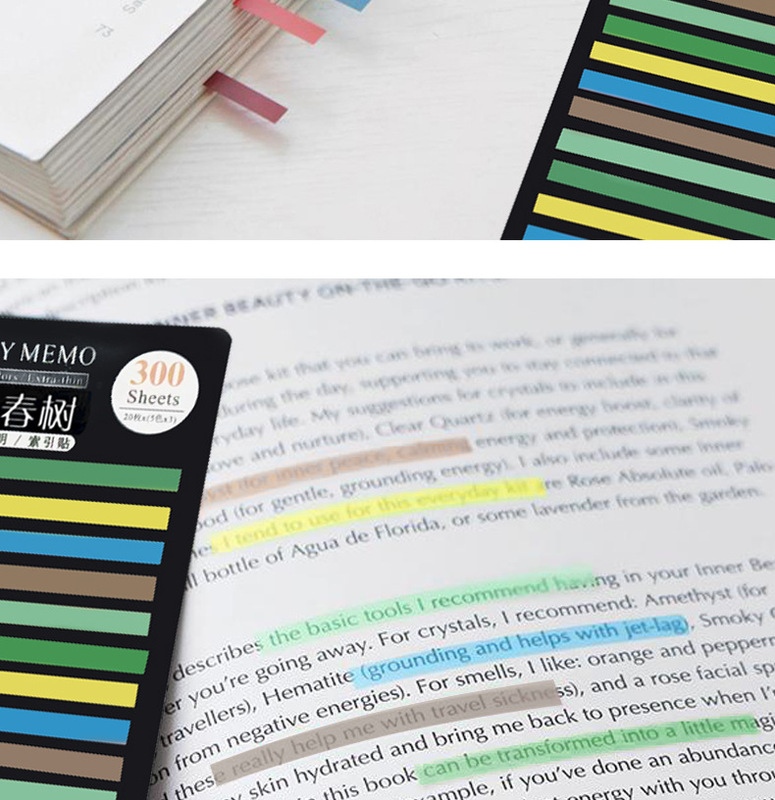 73
Y MEMO
ors / Extra-thin
300
Sheets
春树
20枚x(5色x3)
明 / 索引贴
INNER BEAUTY ON-THE-GO
ose kit that you can bring to work, or generally for
during the day, supporting you to stay connected to that
ryday life. My suggestions for crystals to include in this
ove and nurture), Clear Quartz (for energy boost, clarity of
yst (for inner peace, calming energy and protection), Smoky
ood (for gentle, grounding energy). I also include some inner
nes I tend to use for this everyday kit are Rose Absolute oil, Palo
ll bottle of Agua de Florida, or some lavender from the garden.
describes the basic tools I recommend having in your Inner Be
er you're going away. For crystals, I recommend: Amethyst (for
travellers), Hematite (grounding and helps with jet-lag), Smoky
on from negative energies). For smells, I like: orange and pepperm
d these really help me with travel sickness), and a rose facial sp
y skin hydrated and bring me back to presence when I'
n this book can be transformed into a little magi
xample, if you've done an abundanc
energy with you throu